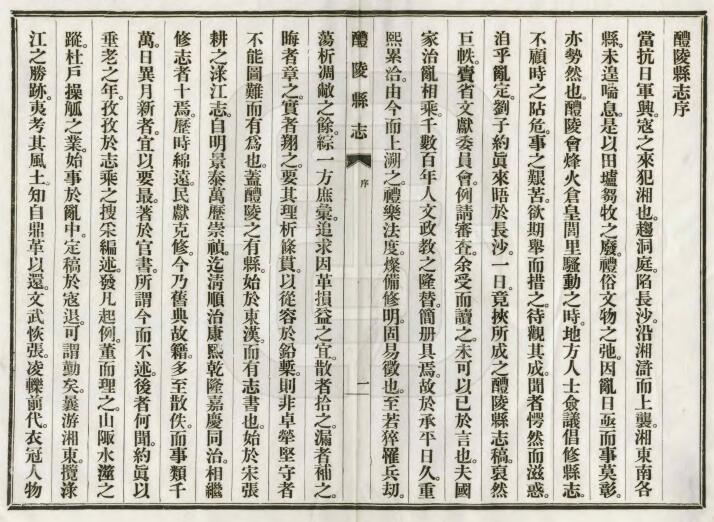 醴陵縣志序
當抗日軍興。寇之來犯湘也。趨洞庭。陷長沙。沿湘滸而上。襲湘東南各
縣。未遑喘息。是以田壚芻牧之廢。禮俗文物之弛。因亂日亟。而事莫彰。
亦勢然也。醴陵會烽火倉皇。閭里騷動之時。地方人士僉議倡修縣志。
不顧時之阽危。事之艱苦。欲期舉而措之。待觀其成。聞者愕然而滋惑。
洎乎亂定。劉子約眞來晤於長沙。一日。竟挾所成之醴陵縣志稿。裒然
巨帙。賷省文獻委員會。例請審查。余受而讀之。未可以已於言也。夫國
家治亂相乘。千數百年人文政教之隆替。簡册具焉。故於承平日久。重
熙累洽。由今而上溯之。禮樂法度。燦備修明。固易徵也。至若猝罹兵劫。
醴陵縣志
序
一
蕩析凋敝之餘。綜一方庶彙。追求因革損益之宜。散者拾之。漏者補之。
晦者章之。實者翔之。要其理析條貫。以從容於鉛槧。則非卓犖堅守者
不能圖難而有爲也。蓋醴陵之有縣。始於東漢。而有志書也。始於宋張
耕之淥江志。自明景泰萬歷崇禎。迄淸順治康熙乾隆嘉慶同治。相繼
修志者十焉。歷時綿遠。民獻克修。今乃舊典故籍。多至散佚。而事類千
萬。日異月新者。宜以要最。著於官書。所謂今而不述。後者何聞。約眞以
垂老之年。孜孜於志乘之搜采編述。發凡起例。董而理之。山陬水澨之
蹤。杜戶操觚之業。始事於亂中。定稿於寇退。可謂勤矣。曩游湘東。攬淥
江之勝跡。夷考其風土。知自鼎革以還。文武恢張。凌轢前代。衣冠人物